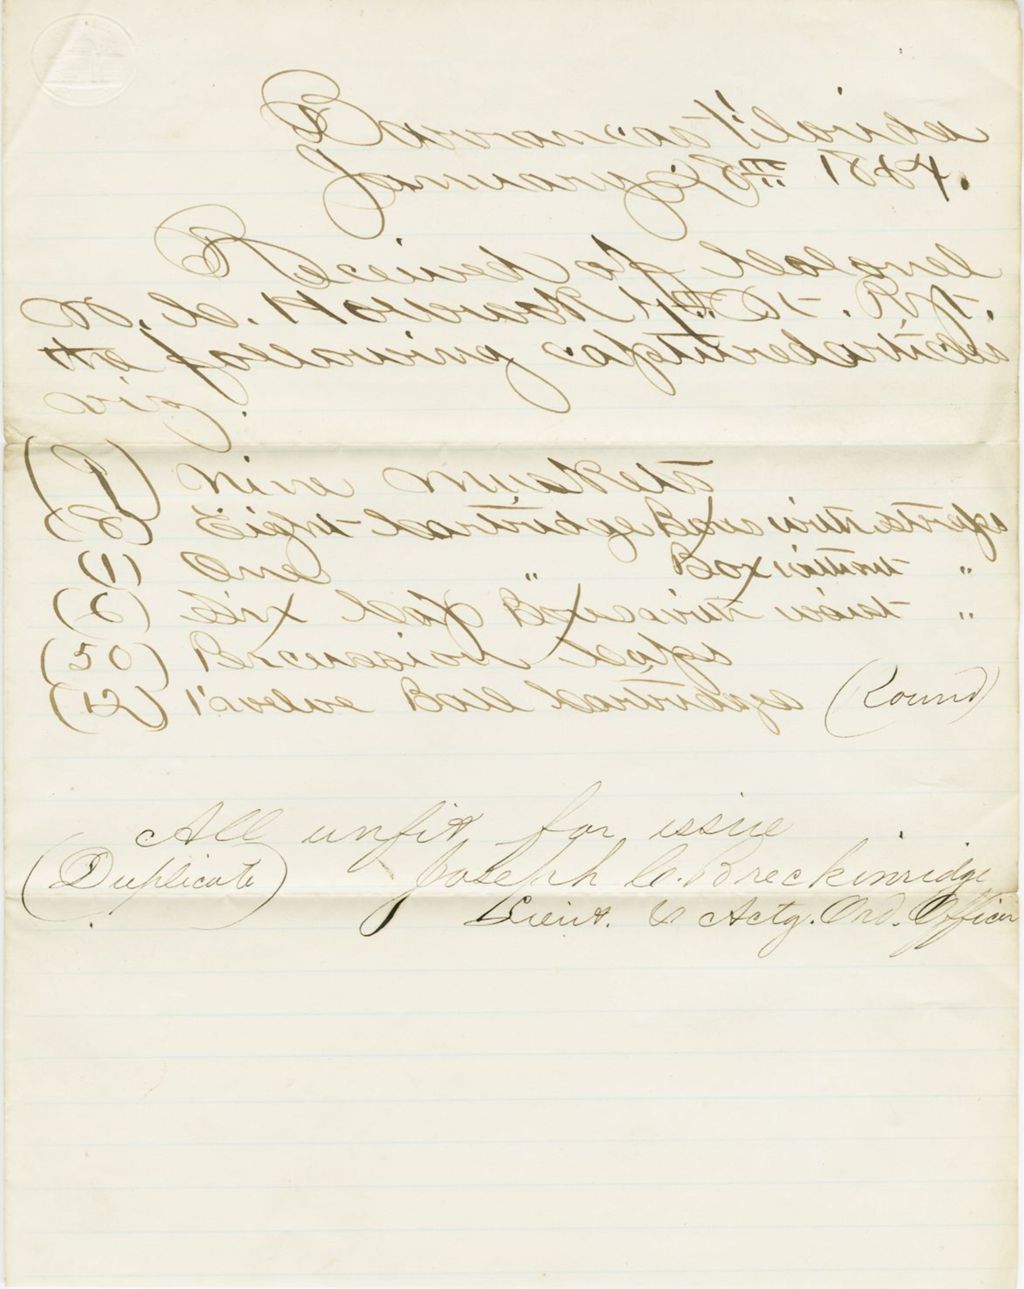 Barrancas Florida
January 8th 1864.
Received of Colonel
W. C. Holbrook 7th Vt. Regt.
the following captured articles
viz
(9) Nine Muskets
(8) Eight Cartridge Boxes with straps
(1) One " Box without "
(6) Six Cap Boxes with waist "
(50) Percussion Caps
(12) Twelve Ball Cartridges (Round)
All unfit for issue
(Duplicate) Joseph C. Breckinridge
Lieut. & Actg. Ord. Officer